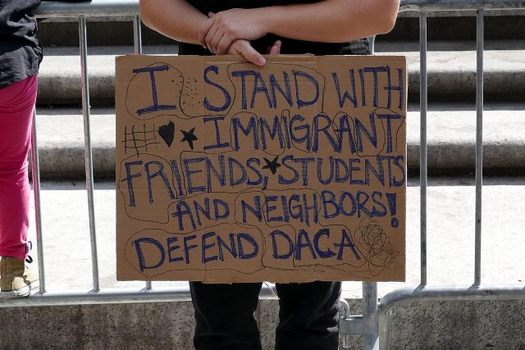 I STAND WITH
IMMIGRANT
FRIENDS, STUDENTS
AND NEIGHBORS!
DEFEND DACA